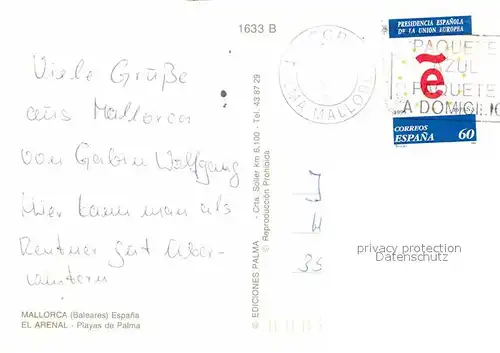 1633 B
PRESIDENCIA ESPAÑOLA
DE LA UNION EUROPEA
PAQUETE
AZUL
PAQUETE
A DOMICILIO
MALLOR
ẽ
CORREOS
ESPAÑA 60
Viele Grüße
aus Mallorca
von Gabin Wolfgang
Hier kann man als
Rentner gut über-
wintern
© EDICIONES PALMA - Ctra. Soller km 6,100 - Tel. 43 87 29
© Reproducción Prohibida
privacy protection
Datenschutz
MALLORCA (Baleares) España
EL ARENAL - Playas de Palma